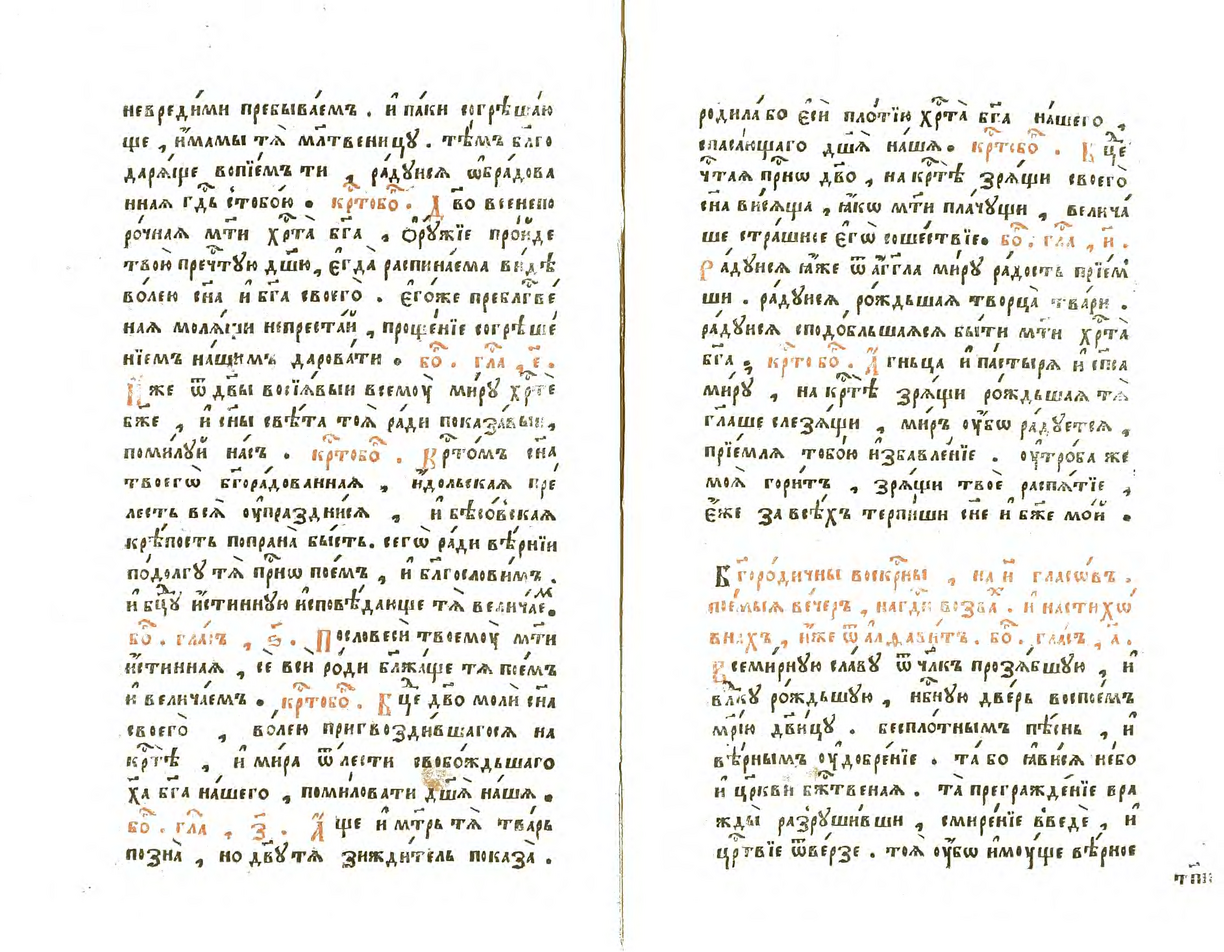 невреди́ми пребыва́емъ . и҆ па́ки согрѣша́ю
ще , и҆́мамы тѧ̀ мл҃твеницꙋ . тѣ́мъ бл҃го
дарѧ́ще вопїе́мъ ти , ра́дꙋисѧ ѡ҆бра́дова
ннаѧ гдⷭ҇ь с̾тобо́ю . крⷭ҇тобоⷢ҇ . Дв҃о всенепо
ро́чнаѧ мт҃и хрⷭ҇та̀ бг҃а , ѻ҆рꙋ́жїе про́йде
твою̀ пречⷭ҇тꙋю дш҃ꙋ , є҆гда̀ распина́ема ви́дѣ
во́лею сн҃а и҆ бг҃а своего̀ . є҆го́же пребл҃гⷭ҇ве́
наѧ молѧ́щи непреста́й , проще́нїе согрѣше́
нїемъ на́шимъ дарова́ти . боⷢ҇ . гла́ , є҃ .
И҆́же ѿ дв҃ы восїѧ́выи всемоꙋ̀ ми́рꙋ хрⷭ҇тѐ
бж҃е , и҆ сн҃ы свѣ́та тоѧ̀ ра́ди показа́выи ,
поми́лꙋй на́съ . крⷭ҇тобоⷢ҇ . Крⷭ҇то́мъ сн҃а
твоегѡ̀ бг҃ора́дованнаѧ , и҆́дольскаѧ пре́
лесть всѧ̀ оу҆праздни́сѧ , и҆ бѣсо́вскаѧ
крѣ́пость попрана̀ бы́сть . сегѡ̀ ра́ди вѣ́рнїи
по́долгꙋ тѧ̀ прⷭ҇нѡ пое́мъ , и҆ бл҃гослови́мъ .
и҆ бц҃ꙋ и҆́стиннꙋю и҆сповѣ́дающе тѧ̀ велича́еⷨ .
боⷢ҇ . гла́съ , ѕ҃ . По словесѝ твоемоꙋ̀ мт҃и
и҆́стиннаѧ , се́ всѝ ро́ди бл҃жа́ще тѧ̀ пое́мъ
и҆ велича́емъ . крⷭ҇тобоⷢ҇ . Бц҃е дв҃о молѝ сн҃а
своего̀ , во́лею пригвозди́вшагосѧ на
крⷭ҇тѣ̀ , и҆ ми́ра ѿ ле́сти свобо́ждьшаго
хⷭ҇а бг҃а на́шего , поми́ловати дш҃ѧ̀ на́шѧ .
боⷢ҇ . гла́ , з҃ . А҆́ще и҆ мт҃рь тѧ̀ тва́рь
позна̀ , но дв҃ꙋ тѧ̀ зижди́тель показа̀ .
родила́ бо є҆сѝ пло́тїю хрⷭ҇та̀ бг҃а на́шего ,
спаса́ющаго дш҃ѧ̀ на́шѧ . крⷭ҇тобоⷢ҇ . Бц҃е
чⷭ҇таѧ прⷭ҇нѡ дв҃о , на крⷭ҇тѣ̀ зрѧ́щи своего̀
сн҃а висѧ́ща , ꙗ҆́кѡ мт҃и пла́чꙋщи , велича́
ше стра́шнсе є҆гѡ̀ сошє́ствїе . боⷢ҇ . гла́ , и҃ .
Ра́дꙋисѧ ꙗ҆́же ѿ а҆́гг҃ла ми́рꙋ ра́дость прїе́м
ши . ра́дꙋисѧ рождьшаѧ творца̀ тва́ри .
ра́дꙋисѧ сподо́бльшаѧсѧ бы́ти мт҃и хрⷭ҇та̀
бг҃а , крⷭ҇тобоⷢ҇ . А҆́гньца и҆ па́стырѧ и҆ сп҃са
ми́рꙋ , на крⷭ҇тѣ̀ зрѧ́щи ро́ждьшаѧ тѧ̀
гл҃аше слезѧ́щи , ми́ръ оу҆́бѡ ра́дꙋетсѧ ,
прїе́млѧ тобо́ю и҆збавле́нїе . оу҆тро́ба же
моѧ̀ гори́тъ , зрѧ́щи твоѐ распѧ́тїе ,
є҆́же за всѣ́хъ терпи́ши сн҃е и҆ бж҃е мо́й .
Бг҃оро́дичны воскрⷭ҇ны , на и҃ гласѡ́въ .
пое́мыѧ ве́черъ , на гдⷭ҇и возваⷯ . и҆ на стихѡ́
внахъ , и҆́же ѿ алдави́тъ . боⷢ҇ . гла́съ , а҃ .
Всеми́рнꙋю сла́вꙋ ѿ чл҃къ прозѧ́бшꙋю , и҆
влⷣкꙋ ро́ждьшꙋю , нбⷭ҇нꙋю две́рь воспое́мъ
мр҃і́ю дв҃и́цꙋ . беспло́тнымъ пѣ́снь , и҆
вѣ́рнымъ оу҆добре́нїе . та́ бо ꙗ҆ви́сѧ не́бо
и҆ цр҃кви бжⷭ҇твенаѧ . та̀ прегражде́нїе вра
жды̀ разрꙋши́вши , смире́нїе введѐ , и҆
црⷭ҇твїе ѿве́рзе . тоѧ̀ оу҆́бѡ и҆мꙋ́ще вѣ́рное